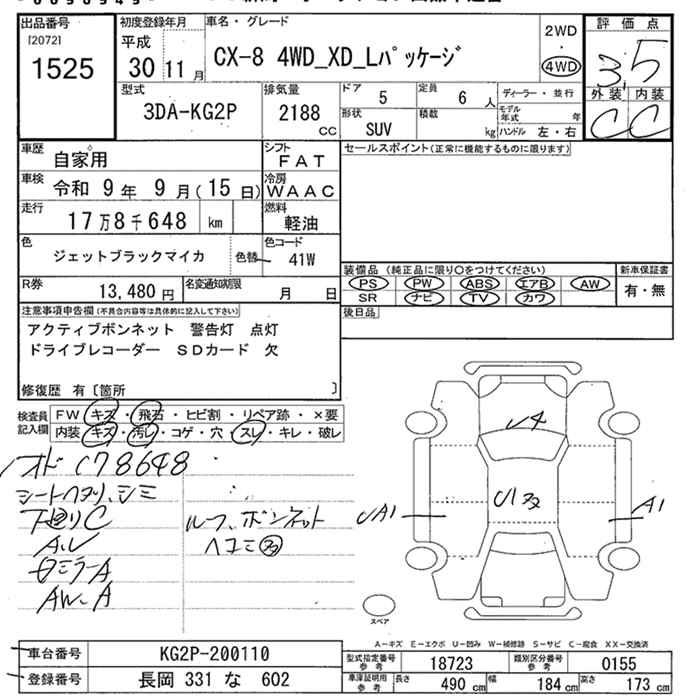 出品番号 初度登録年月 車名・グレード 評価点
[2072] 平成 2WD
1525 30 11月 CX-8 4WD_XD_Lパッケージ ・ 3.5
4WD
型式 排気量 ドア 5 定員 6人 ディーラー・並行 外装 内装
3DA-KG2P 2188 cc 形状 SUV 積載 kg モデル年式 年 C C
ハンドル 左・右
車歴 自家用 シフト FAT セールスポイント(正常に機能するものに限ります)
車検 令和 9年 9月(15日) 冷房 WAAC
走行 17万8千648 km 燃料 軽油
色 ジェットブラックマイカ 色替 色コード 41W
装備品 (純正品に限り○をつけてください) 新車保証書
R券 13,480円 名変通知期限 月 日 PS PW ABS エアB AW 有・無
SR ナビ TV カワ
注意事項申告欄(不具合内容等は具体的に記入して下さい) 後日品
アクティブボンネット 警告灯 点灯
ドライブレコーダー SDカード 欠
修復歴 有〔箇所 〕
検査員記入欄 FW キズ・飛石・ヒビ割・リペア跡・×要
内装 キズ・汚レ・コゲ・穴・スレ・キレ・破レ
オド178648
シートヘタリ、シミ
下回りC ルーフ、ボンネット
A,U ヘコミ多
ミラーA
AW-A
U4
U1多
UA1
A1
スペア
A-キズ E-エクボ U-凹み W-補修跡 S-サビ C-腐食 XX-交換済
車台番号 KG2P-200110 型式指定番号 参考 18723 類別区分番号 参考 0155
登録番号 長岡 331 な 602 車庫証明用 参考 長さ 490cm 幅 184cm 高さ 173cm